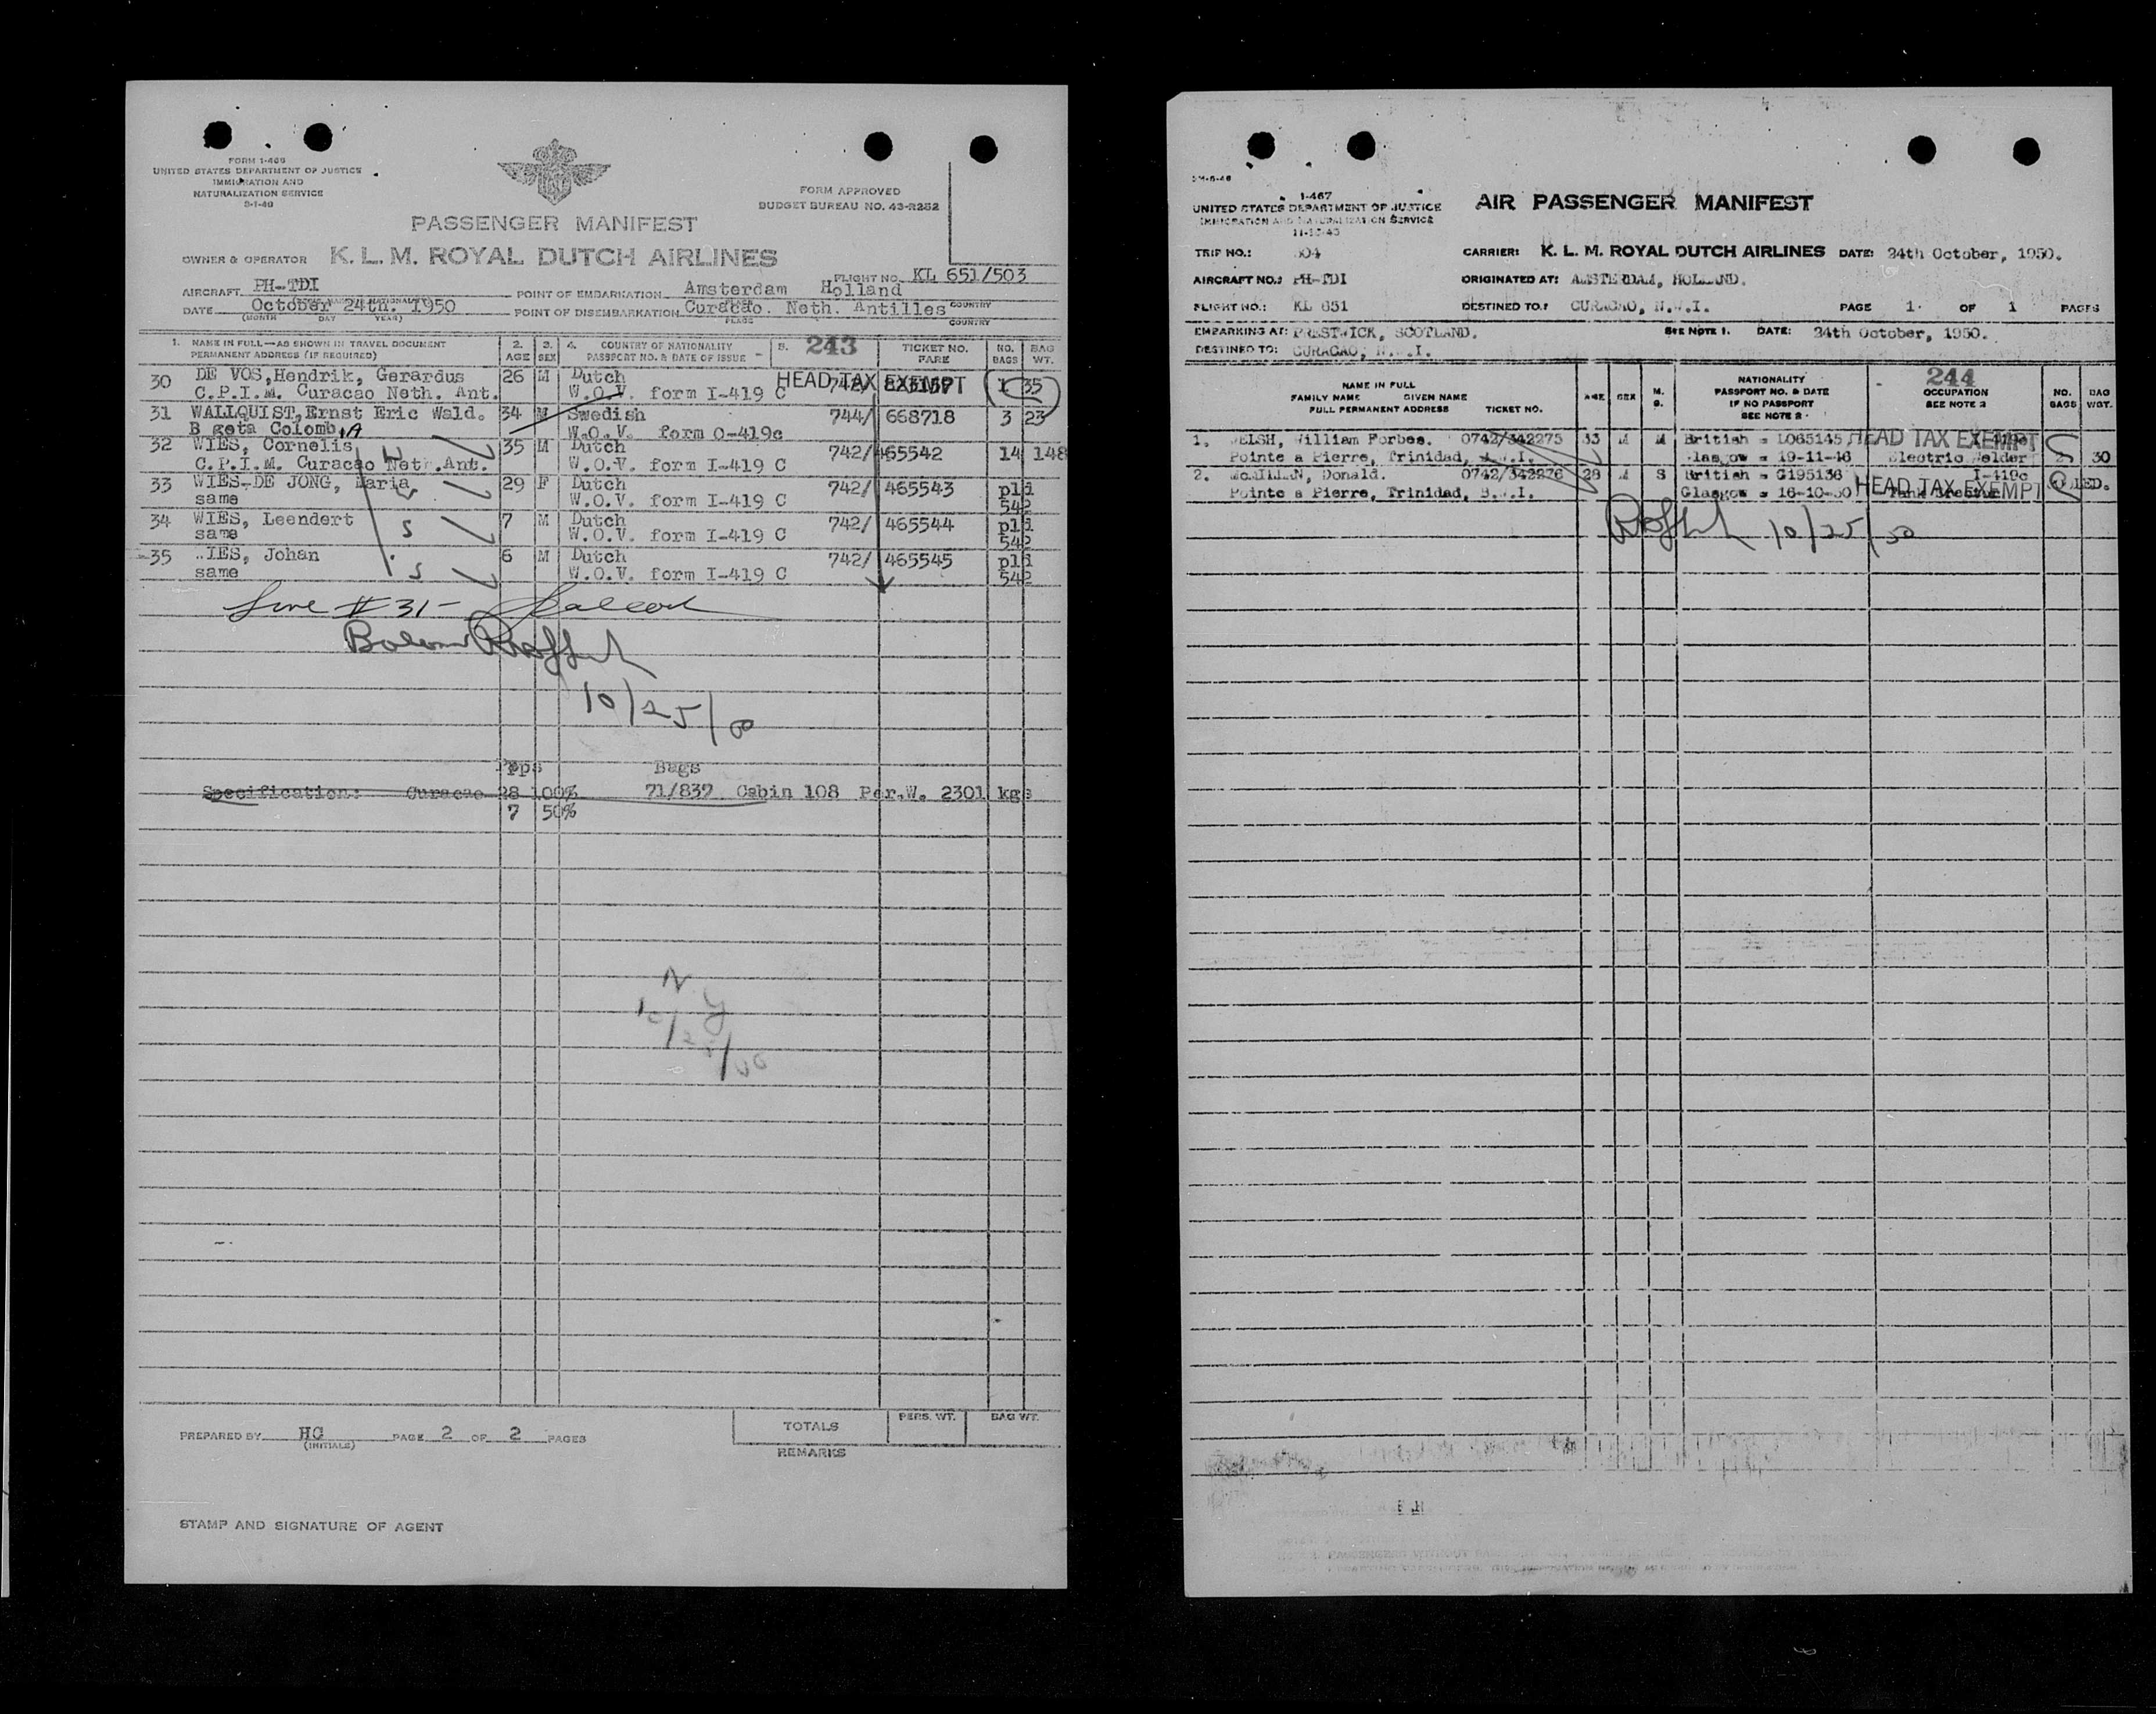 FORM I-466
UNITED STATES DEPARTMENT OF JUSTICE
IMMIGRATION AND
NATURALIZATION SERVICE
FORM APPROVED
BUDGET BUREAU NO. 43-R252
PASSENGER MANIFEST
OWNER & OPERATOR K. L. M. ROYAL DUTCH AIRLINES
FLIGHT NO. KL 651/503
AIRCRAFT PH-TDI POINT OF EMBARKATION Amsterdam Holland
DATE October 24th. 1950 POINT OF DISEMBARKATION Curacao. Neth. Antilles
(MONTH DAY YEAR) PLACE COUNTRY
1. NAME IN FULL—AS SHOWN IN TRAVEL DOCUMENT 2. 3. 4. COUNTRY OF NATIONALITY 5. 243 TICKET NO. NO. BAG
PERMANENT ADDRESS (IF REQUIRED) AGE SEX PASSPORT NO. & DATE OF ISSUE FARE BAGS WT.
30 DE VOS, Hendrik, Gerardus 26 M Dutch HEAD TAX EXEMPT 1 35
C.P.I.M. Curacao Neth. Ant. W.O.V. form I-419 C
31 WALLQUIST, Ernst Eric Wald. 34 M Swedish 744/ 668718 3 23
B geta Colomb.A W.O.V. form O-419c
32 WIES, Cornelis 35 M Dutch 742/ 465542 14 148
C.P.I.M. Curacao Neth.Ant. W.O.V. form I-419 C
33 WIES-DE JONG, Maria 29 F Dutch 742/ 465543 pli
same W.O.V. form I-419 C 542
34 WIES, Leendert 7 M Dutch 742/ 465544 pli
same W.O.V. form I-419 C 542
35 WIES, Johan 6 M Dutch 742/ 465545 pli
same W.O.V. form I-419 C 542
Line #31-
10/25/50
Bags
Specification: Curacao 28 100% 71/839 Cabin 108 Per.W. 2301 kgs
7 50%
N Y
10/25/50
PREPARED BY HG PAGE 2 OF 2 PAGES
(INITIALS)
TOTALS PERS. WT. BAG WT.
REMARKS
STAMP AND SIGNATURE OF AGENT
I-467
UNITED STATES DEPARTMENT OF JUSTICE
IMMIGRATION AND NATURALIZATION SERVICE
AIR PASSENGER MANIFEST
TRIP NO.: 504 CARRIER: K. L. M. ROYAL DUTCH AIRLINES DATE: 24th October, 1950.
AIRCRAFT NO.: PH-TDI ORIGINATED AT: AMSTERDAM, HOLLAND.
FLIGHT NO.: KL 651 DESTINED TO: CURACAO, N.W.I. PAGE 1 OF 1 PAGES
EMBARKING AT: PRESTWICK, SCOTLAND. SEE NOTE 1. DATE: 24th October, 1950.
DESTINED TO: CURACAO, N.W.I.
NAME IN FULL
FAMILY NAME GIVEN NAME
FULL PERMANENT ADDRESS TICKET NO.
AGE SEX M. S.
NATIONALITY
PASSPORT NO. & DATE
IF NO PASSPORT
SEE NOTE 2
244
OCCUPATION
SEE NOTE 2
NO. BAGS
BAG WGT.
1. WELSH, William Forbes. 0742/342275 33 M M British = L065145 HEAD TAX EXEMPT
Pointe a Pierre, Trinidad, B.W.I. Glasgow = 19-11-46 Electric Welder 30
2. McMILLAN, Donald. 0742/342276 28 M S British = G195136 I-419c
Pointe a Pierre, Trinidad, B.W.I. Glasgow = 16-10-50 HEAD TAX EXEMPT
10/25/50